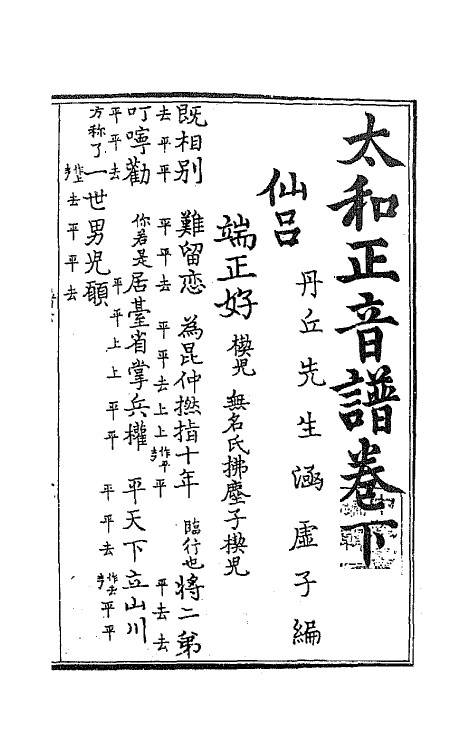 太和正音譜卷下
丹丘先生涵虛子編
仙呂
端正好 楔兒 無名氏拂塵子楔兒
既相别 難留恋 為昆仲撚指十年 臨行也將二弟
去平平 平平去 平平去上上作平平 平去去
叮嚀勸 你若是居臺省掌兵權 平天下立山川
平平去 平平上上平平 平平去作去平平
方称了一世男児願
作上去平平去